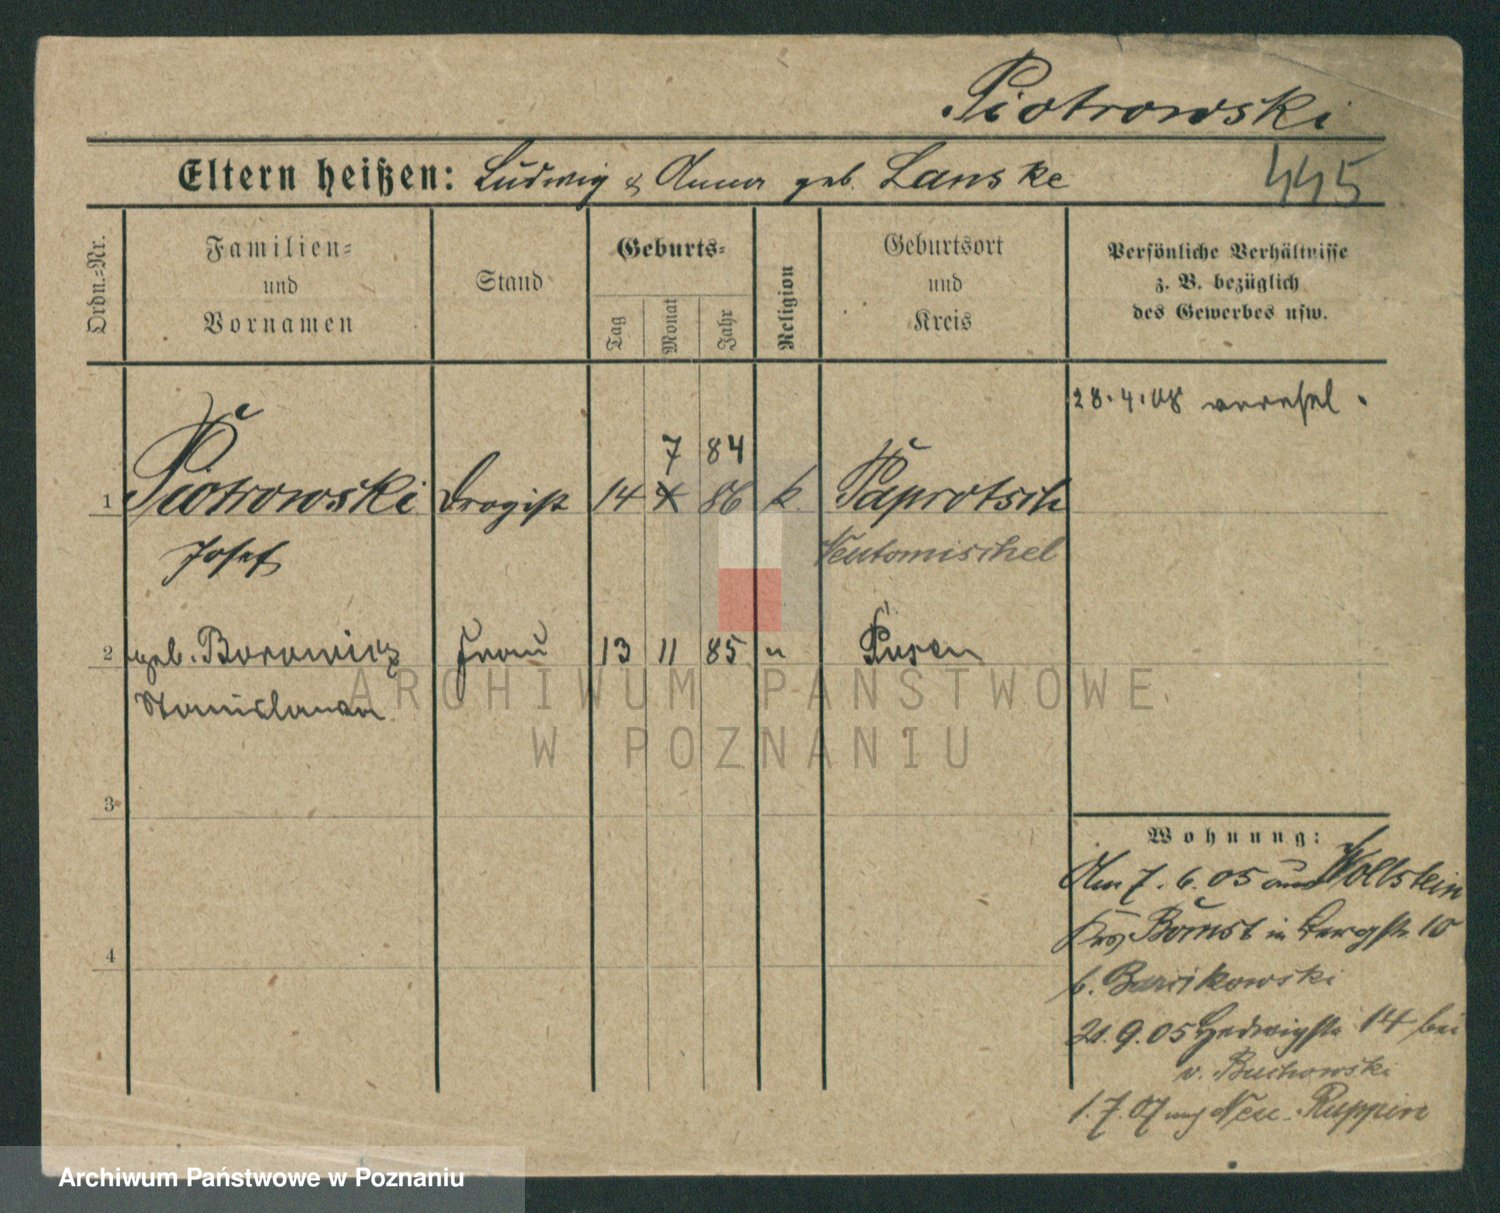 Piotrowski
Eltern heißen: Ludwig & Anna geb. Lanske
445
Ordn.-Nr.
Familien-
und
Vornamen
Stand
Geburts-
Tag
Monat
Jahr
Religion
Geburtsort
und
Kreis
Persönliche Verhältnisse
z. B. bezüglich
des Gewerbes usw.
28.4.08
7 84
1 Piotrowski Drogist 14 86 k. Paprotsch
Josef Neutomischel
2 geb. Borowicz Frau 13 11 85 " Posen
Stanislawa
ARCHIWUM PAŃSTWOWE
W POZNANIU
3
4
Wohnung:
Am 7.6.05 aus Wollstein
Krs Bomst in Bergstr. 10
b. Barcikowski
21.9.05 Hedwigstr. 14 bei
v. Buchowski
1.7.07 nach Neu-Ruppin
Archiwum Państwowe w Poznaniu